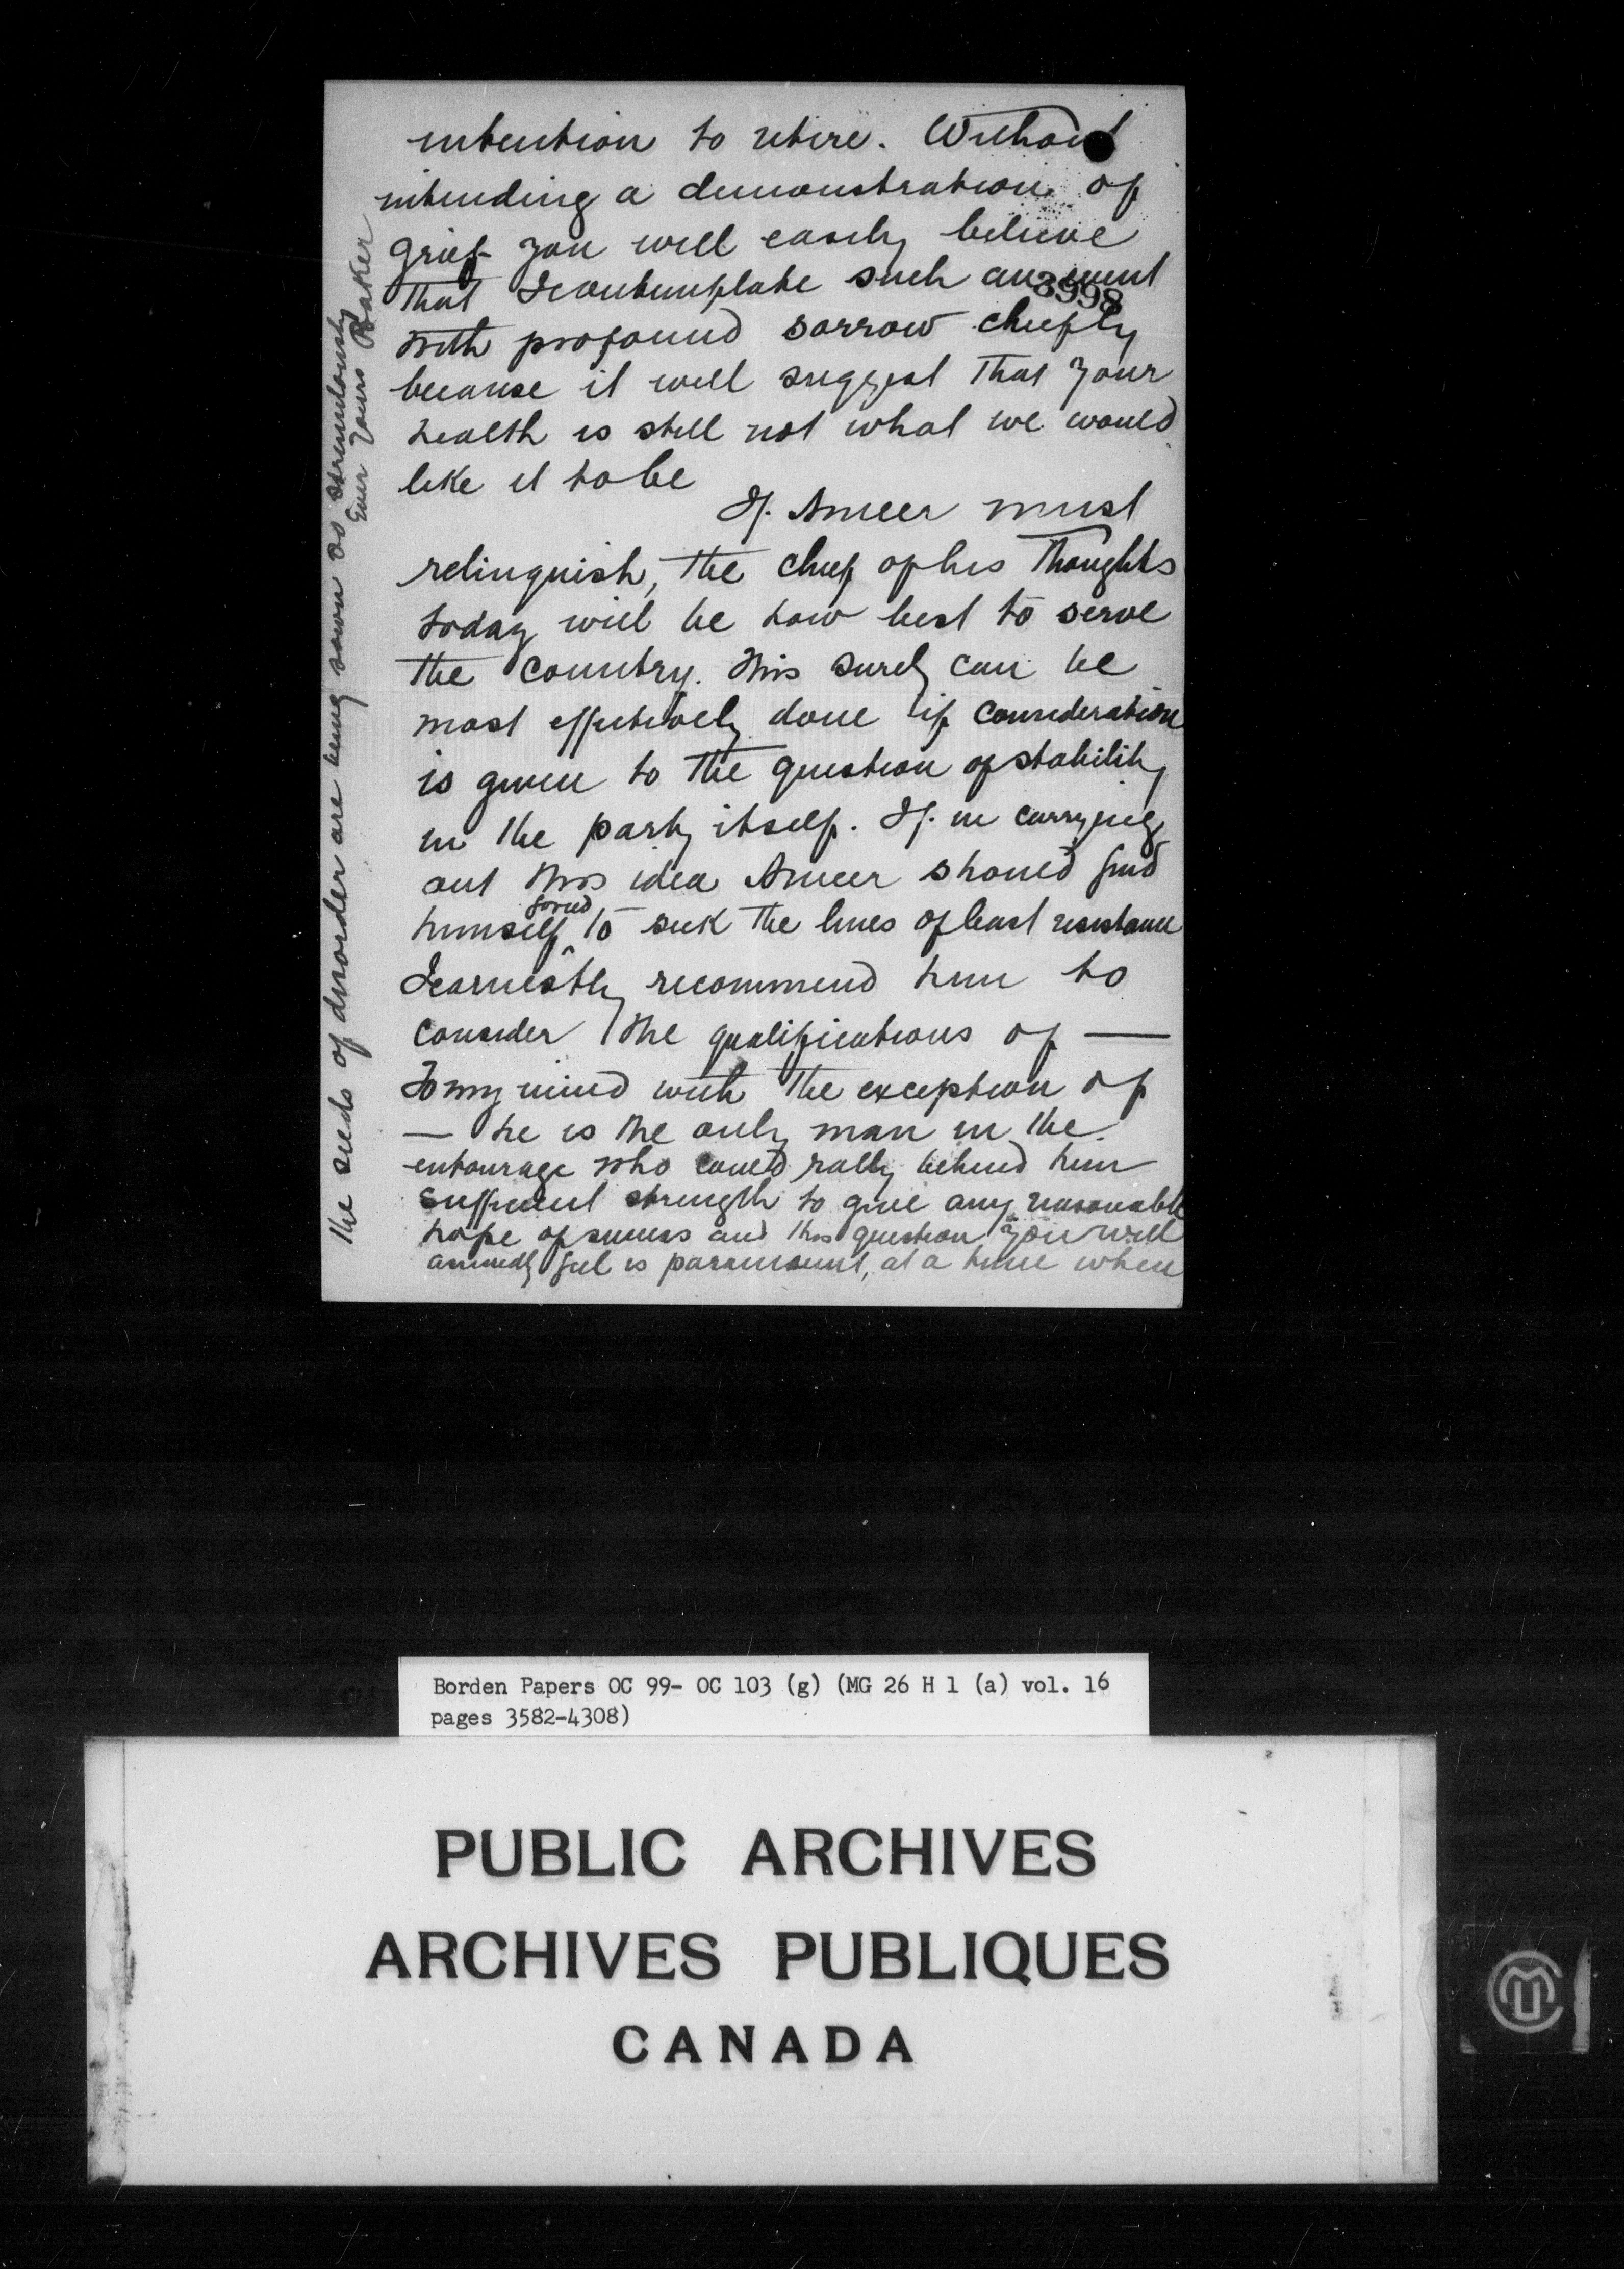 intention to retire. Without
intending a demonstration of
grief you will easily believe
that I contemplate such an event
3998
with profound sorrow chiefly
because it will suggest that your
health is still not what we would
like it to be
If Ameer must
relinquish, the chief of his thoughts
today will be how best to serve
the country. This surely can be
most effectively done if consideration
is given to the question of stability
in the party itself. If in carrying
out this idea Ameer should find
himself forced to seek the lines of least resistance
I earnestly recommend him to
consider the qualifications of —
To my mind with the exception of
— he is the only man in the
entourage who could rally behind him
sufficient strength to give any reasonable
hope of success and this question you will
assuredly feel is paramount, at a time when
the seeds of disorder are being sown so strenuously
Ever yours Baker
Borden Papers OC 99- OC 103 (g) (MG 26 H 1 (a) vol. 16
pages 3582-4308)
PUBLIC ARCHIVES
ARCHIVES PUBLIQUES
CANADA